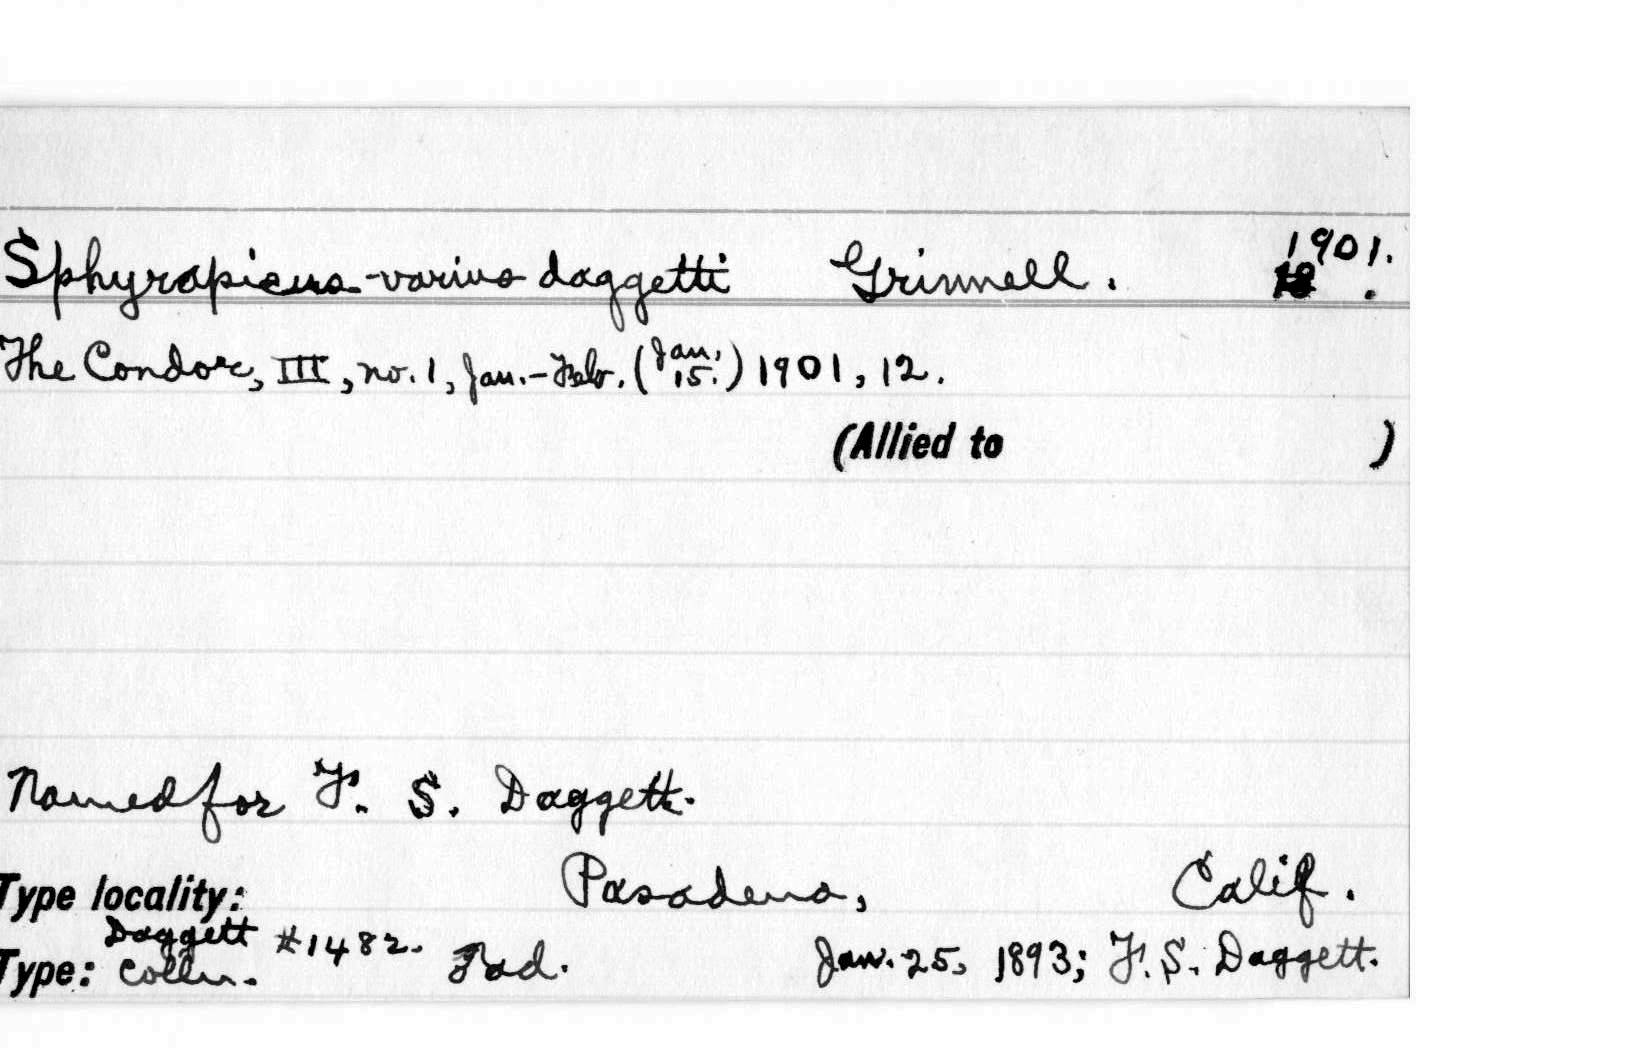 Sphyrapicus varius daggetti Grinnell. 1901.
The Condor, III, no. 1, Jan.-Feb. (Jan. 15.) 1901, 12.
(Allied to )
Named for F. S. Daggett.
Type locality: Pasadena, Calif.
Daggett #1482.
Type: Colln. ad. Jan. 25, 1893; F. S. Daggett.